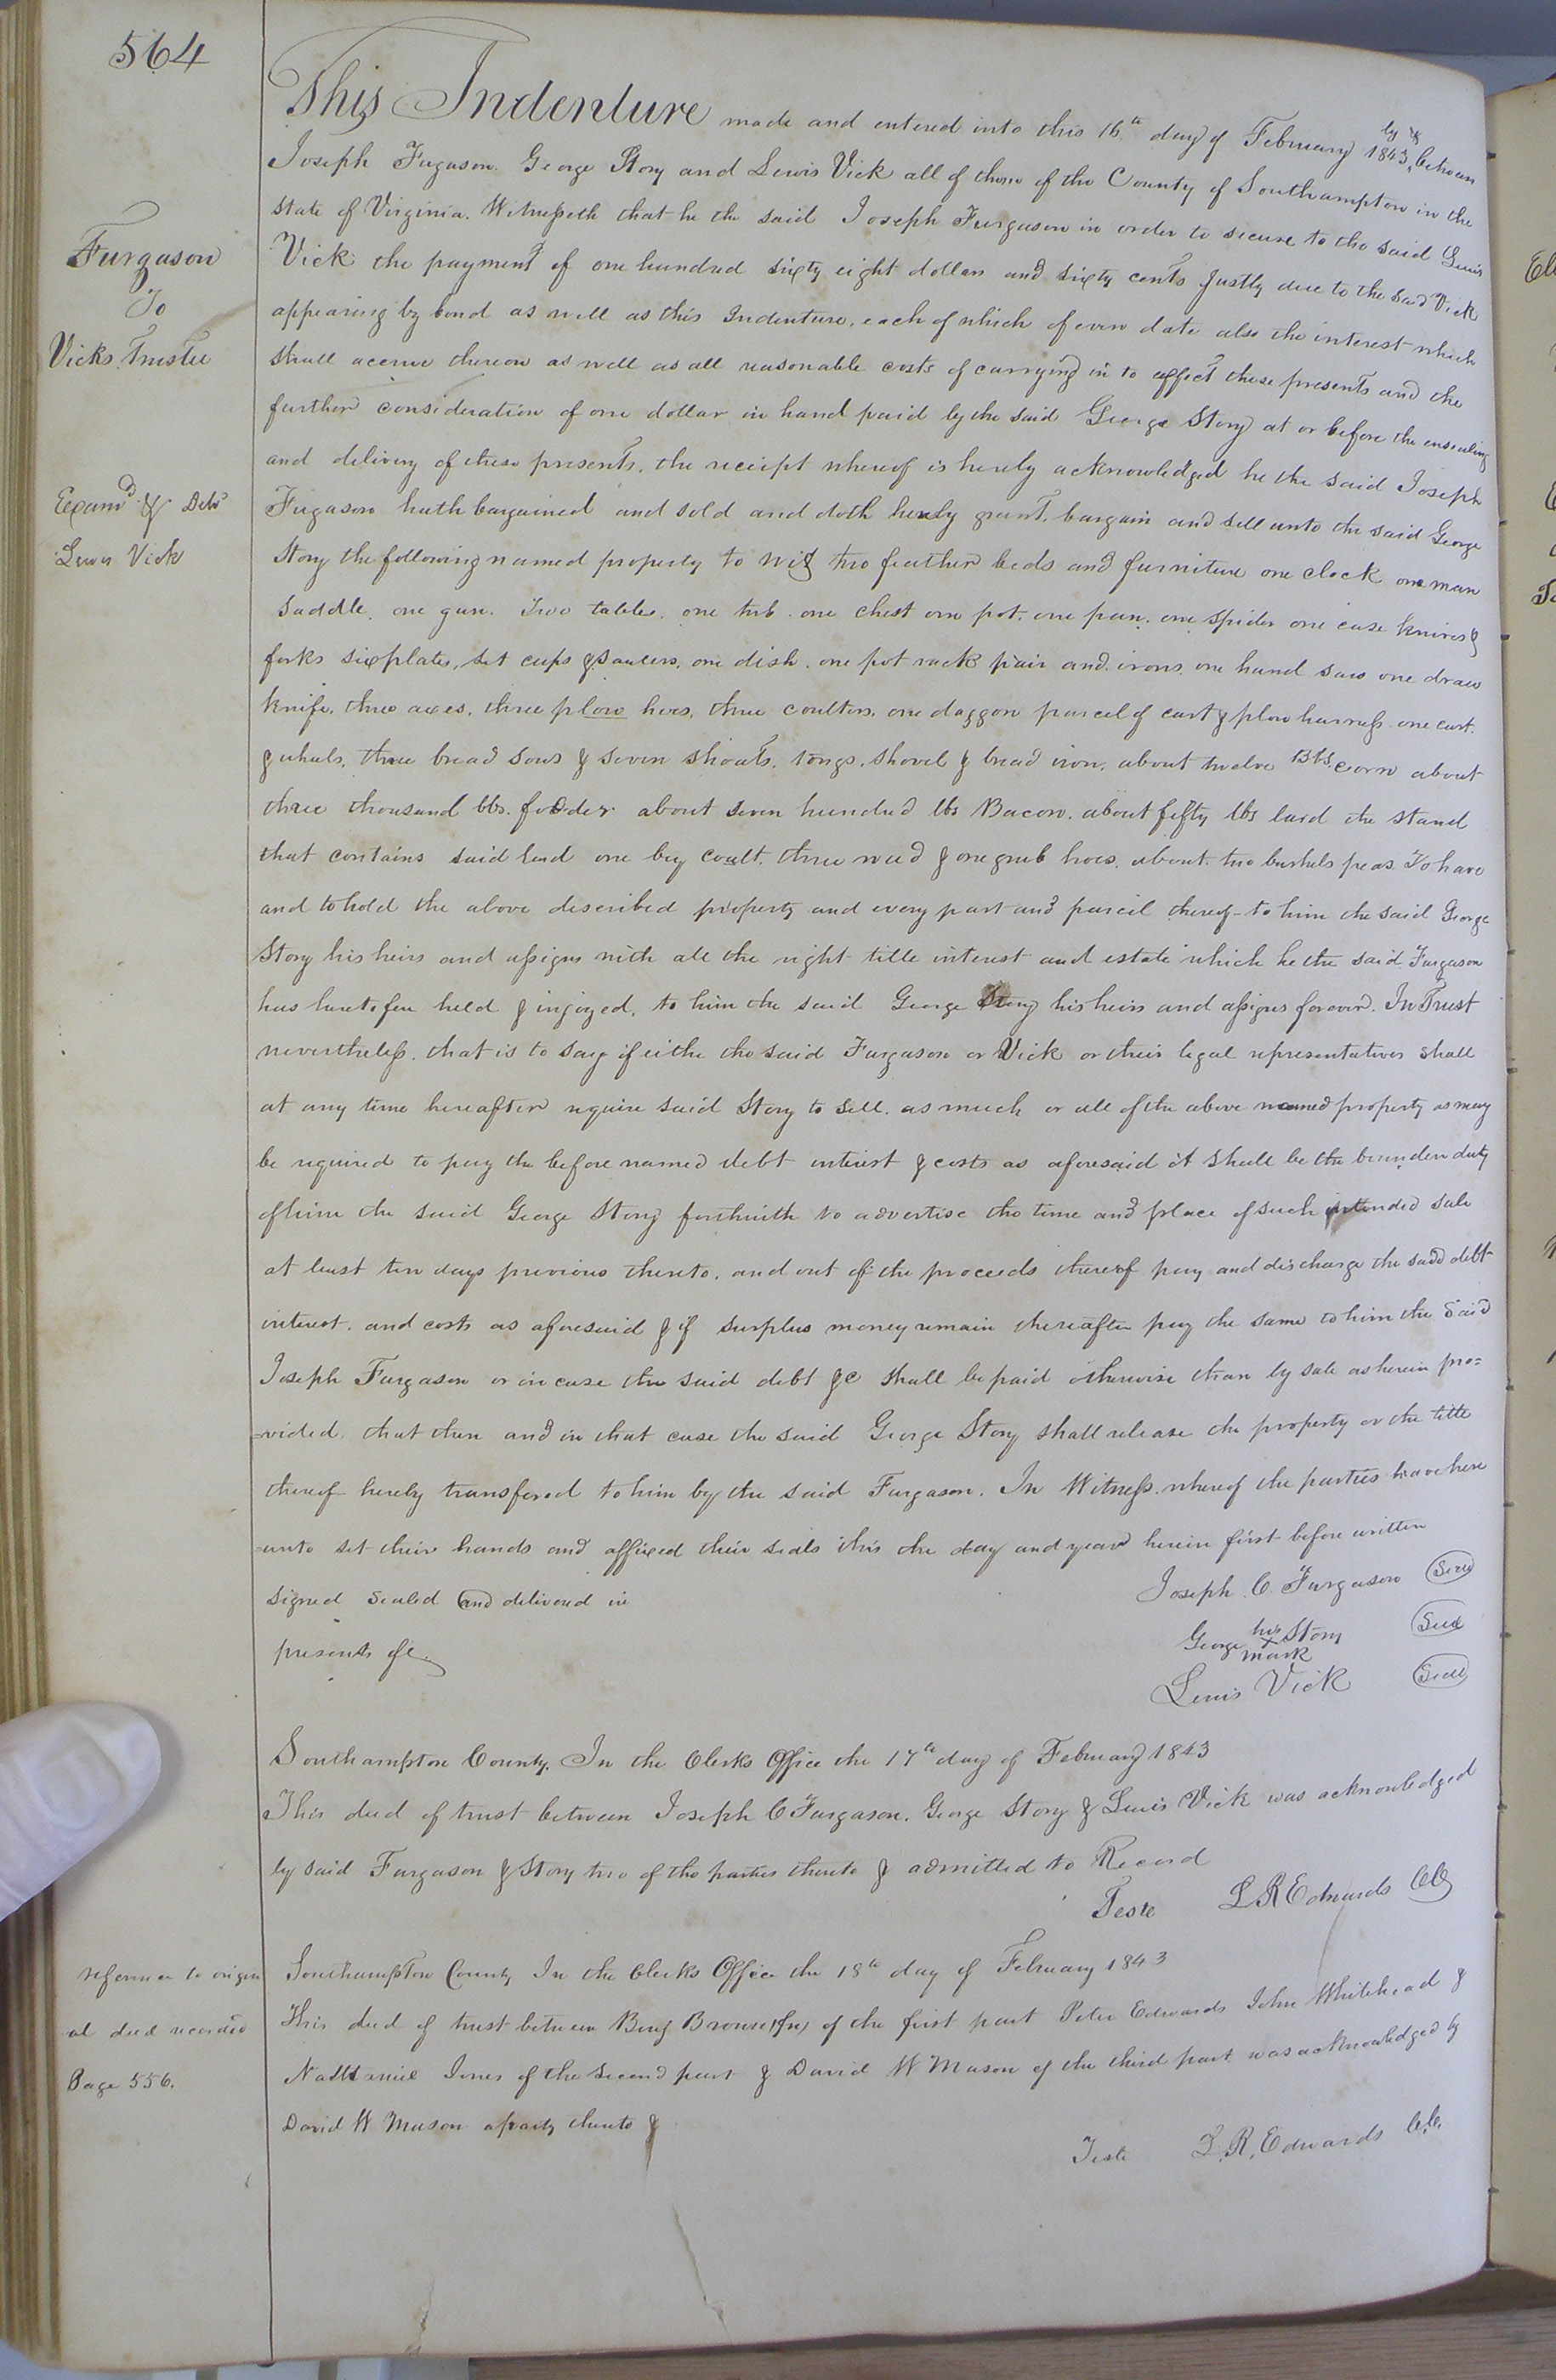 564
This Indenture made and entered into this 16th day of February 1843, by & between
Joseph Fugason. George Story and Lewis Vick all of them of the County of Southampton in the
state of Virginia. Witnesseth that he the said Joseph Furgason in order to secure to the said Lewis
Furgason
Vick the payment of one hundred sixty eight dollars and sixty cents justly due to the said Vick
To
appearing by bond as well as this Indenture, each of which of even date also the interest which
Vicks Trustee
shall accrue thereon as well as all reasonable costs of carrying in to affect these presents and the
further consideration of one dollar in hand paid by the said George Story at or before the ensealing
and delivery of these presents, the receipt whereof is hereby acknowledged he the said Joseph
Examd & Deld
Fugason hath bargained and sold and doth hereby grant, bargain and sell unto the said George
Lewis Vick
Story the following named property to wit two feather beds and furniture one clock one man
saddle, one gun. Two tables. one tub. one chest one pot. one pan. one spider one case knives &
forks six plates, set cups & saucers, one dish. one pot rack pair and. irons. one hand saw one draw
knife, three axes, three plow hoes, three coulters, one daggon parcel of cart & plow harness. one cart.
& wheels, three bread sows & seven shoats. tongs. shovel & bread iron. about twelve Bbs. corn about
three thousand lbs. fodder about seven hundred lbs Bacon. about fifty lbs lard the stand
that contains said lard one bay coalt. three weed & one grub hoes. about two bushels peas. To have
and to hold the above described property and every part and parcil thereof to him the said George
Story his heirs and assigns with all the right title interest and estate which he the said Furgason
has heretofore held & injoyed, to him the said George Story his heirs and assigns forever. In Trust
nevertheless. that is to say if eithe the said Furgason or Vick or their legal representatives shall
at any time hereafter require said Story to sell. as much or all of the above named property as may
be required to pay the before named debt interest & costs as aforesaid it shall be the bounden duty
of him the said George Story forthwith to advertise the time and place of such intended sale
at least ten days previous thereto, and out of the proceeds thereof pay and discharge the said debt
interest. and costs as aforesaid & if surplus money remain thereafter pay the same to him the said
Joseph Furgason or in case the said debt &c shall be paid otherwise than by sale as herein pro=
=vided. that then and in that case the said George Story shall release the property or the title
thereof hereby transfered to him by the said Furgason. In Witness. whereof the parties have here
=unto set their hands and affixed their seals this the day and year herein first before written
signed sealed and delivered in
Joseph C Furgason Seal
presents of
George his X mark Story Seal
Lewis Vick Seal
Southampton County. In the Clerks Office the 17th day of February 1843
This deed of trust between Joseph C Furgason. George Story & Lewis Vick was acknowledged
by said Furgason & Story two of the parties thereto & admitted to Record
Teste L R Edwards CC
referrence to origin
Southampton County In the Clerks Office the 18th day of February 1843
al deed recorded
This deed of trust between Benj Browne (fn) of the first part Peter Edwards John Whitehead &
Page 556.
Nathaniel Jones of the second part & David W Mason of the third part was acknowledged by
David W Mason a party thereto &
Teste L. R. Edwards C.C.